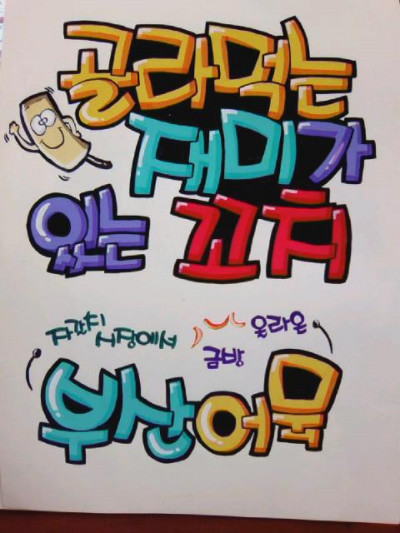 골라먹는
재미가
있는 꼬치
자갈치 시장에서 금방 올라온
부산어묵